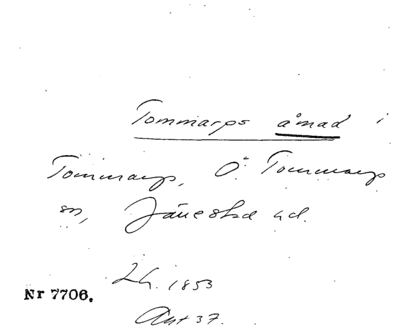 Tommarps åmad i
Tommarp, Ö. Tommarps
sn, Järrestad hd.
Lh. 1853
Nr 7706.
Akt 37.